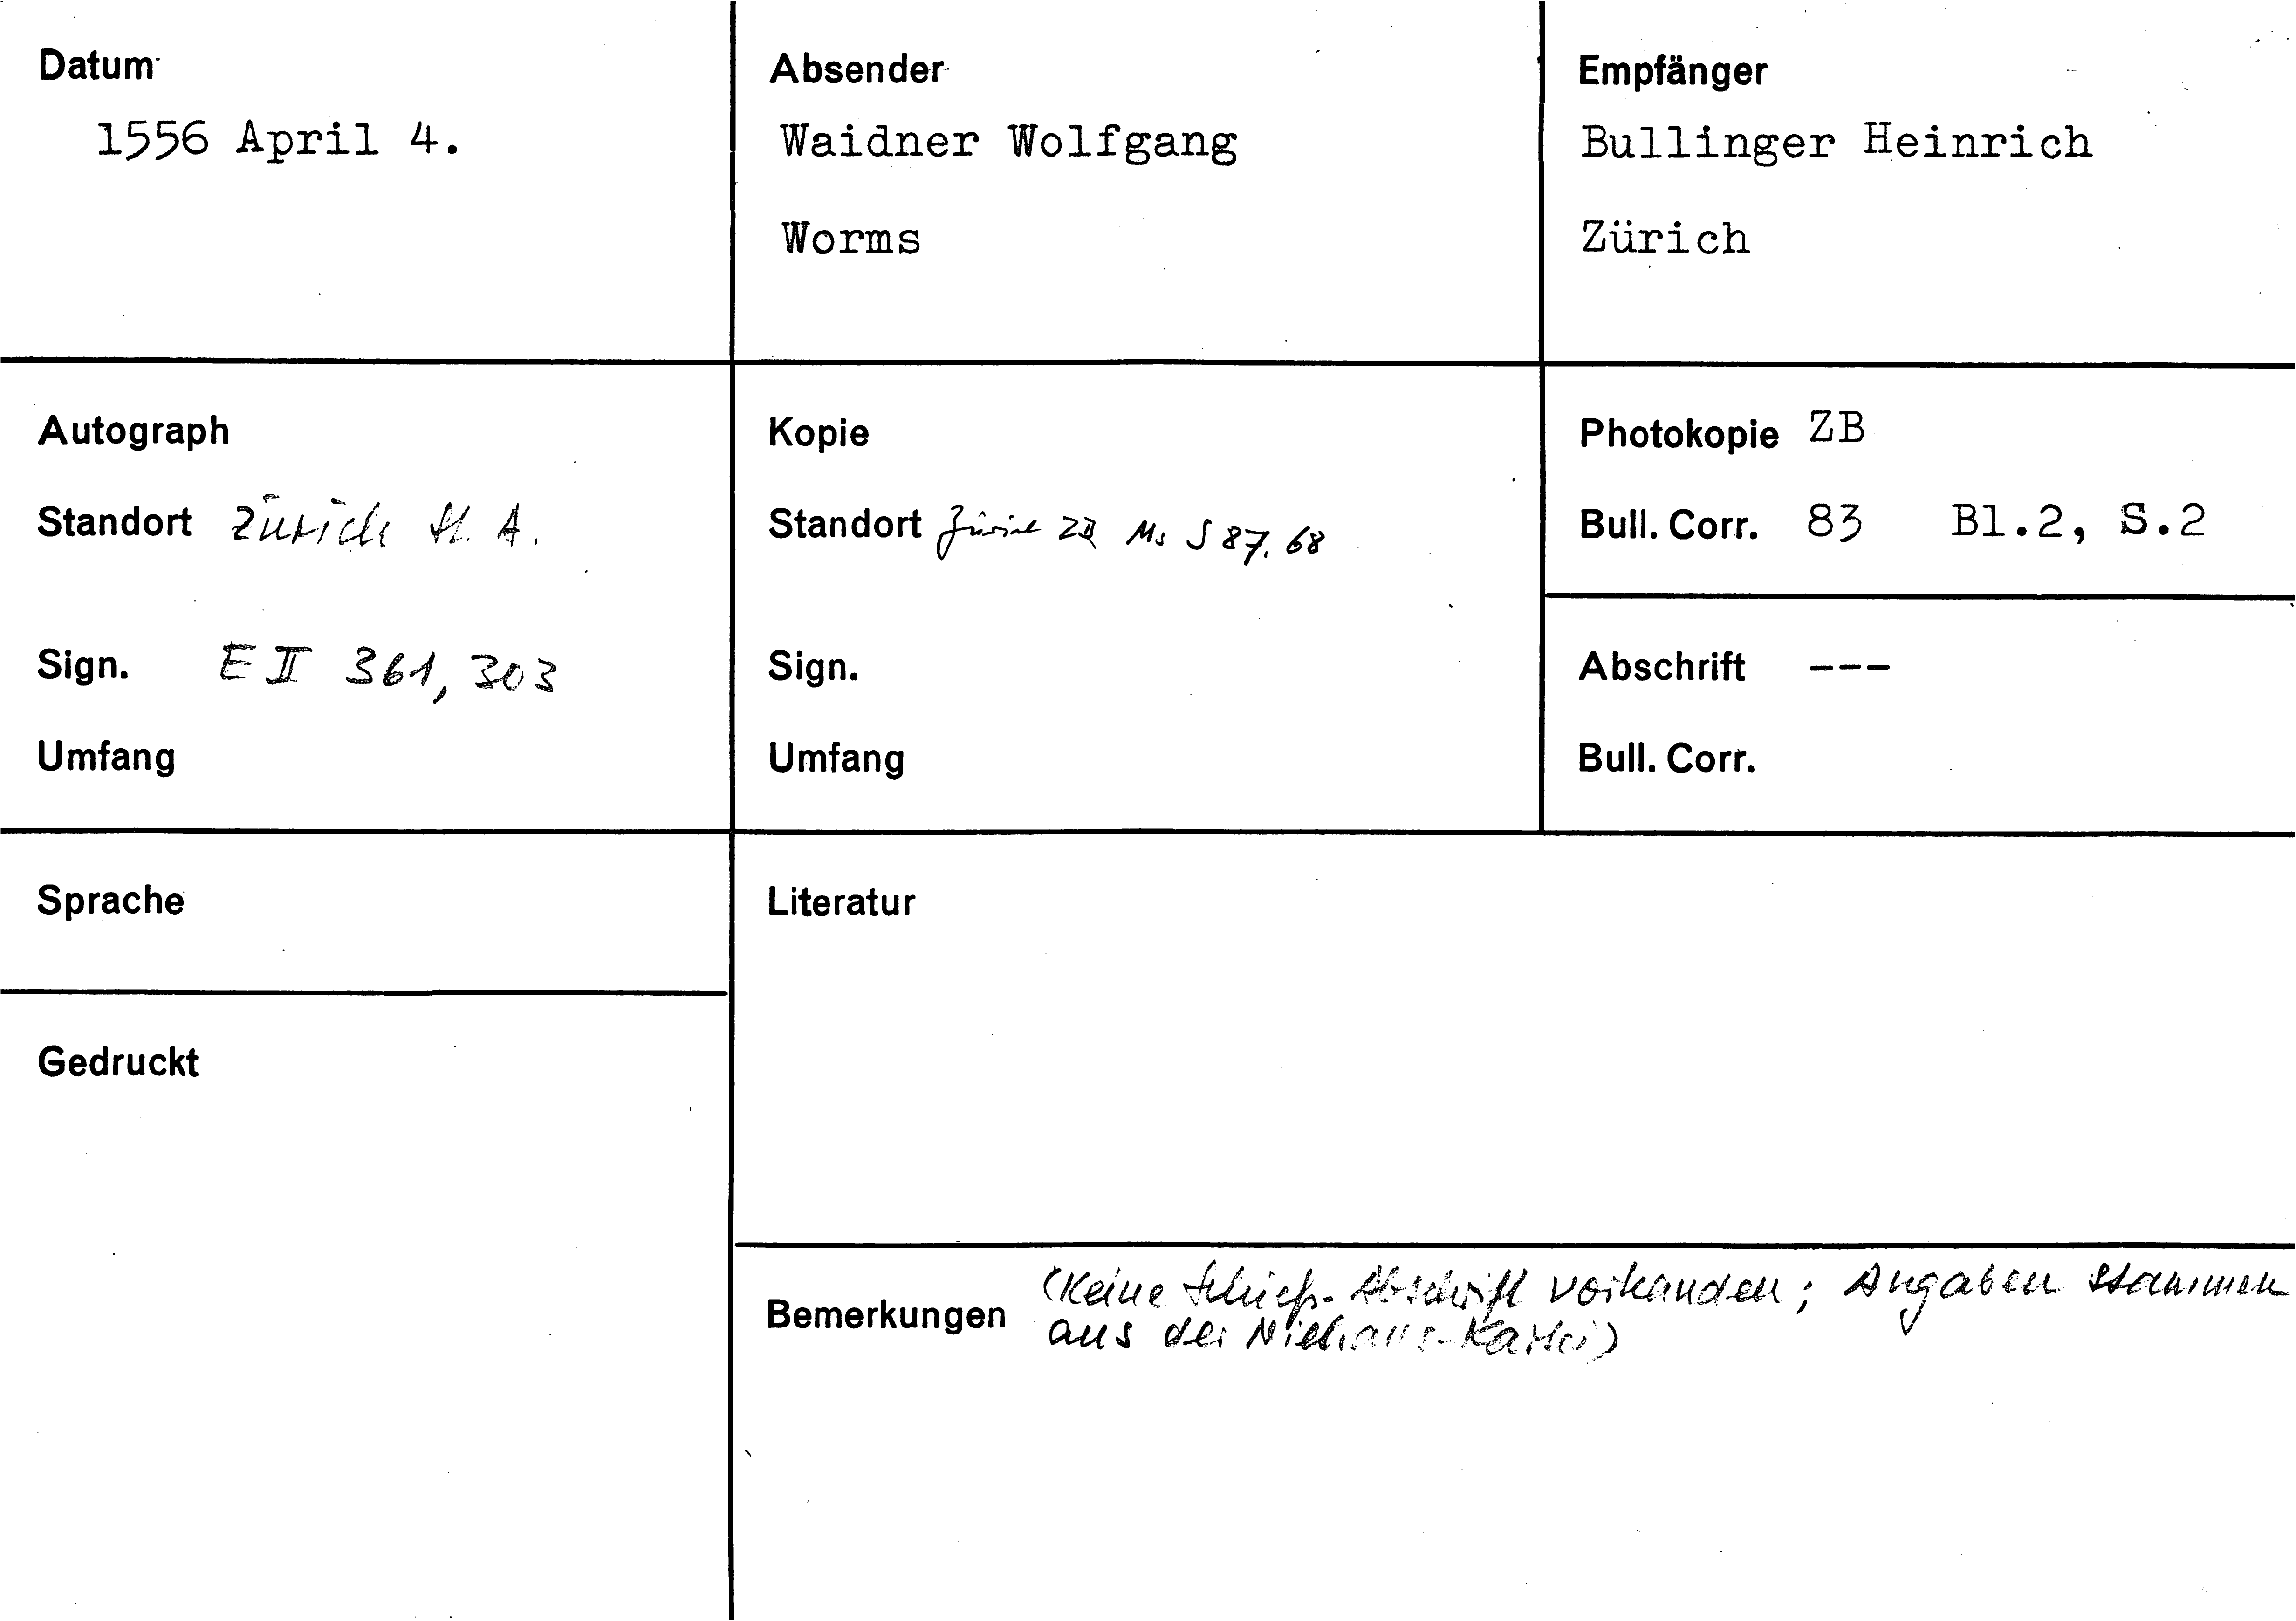 Datum
1556 April 4.
Absender
Waidner Wolfgang
Worms
Empfänger
Bullinger Heinrich
Zürich
Autograph
Standort Zürich St. A.
Sign. E II 361, 303
Umfang
Kopie
Standort Zürich ZB Ms S 87, 68
Sign.
Umfang
Photokopie ZB
Bull. Corr. 83 Bl.2, S.2
Abschrift ---
Bull. Corr.
Sprache
Gedruckt
Literatur
Bemerkungen (Keine Schieß-Abschrift vorhanden; Angaben stammen
aus der Niehaus-Kartei)